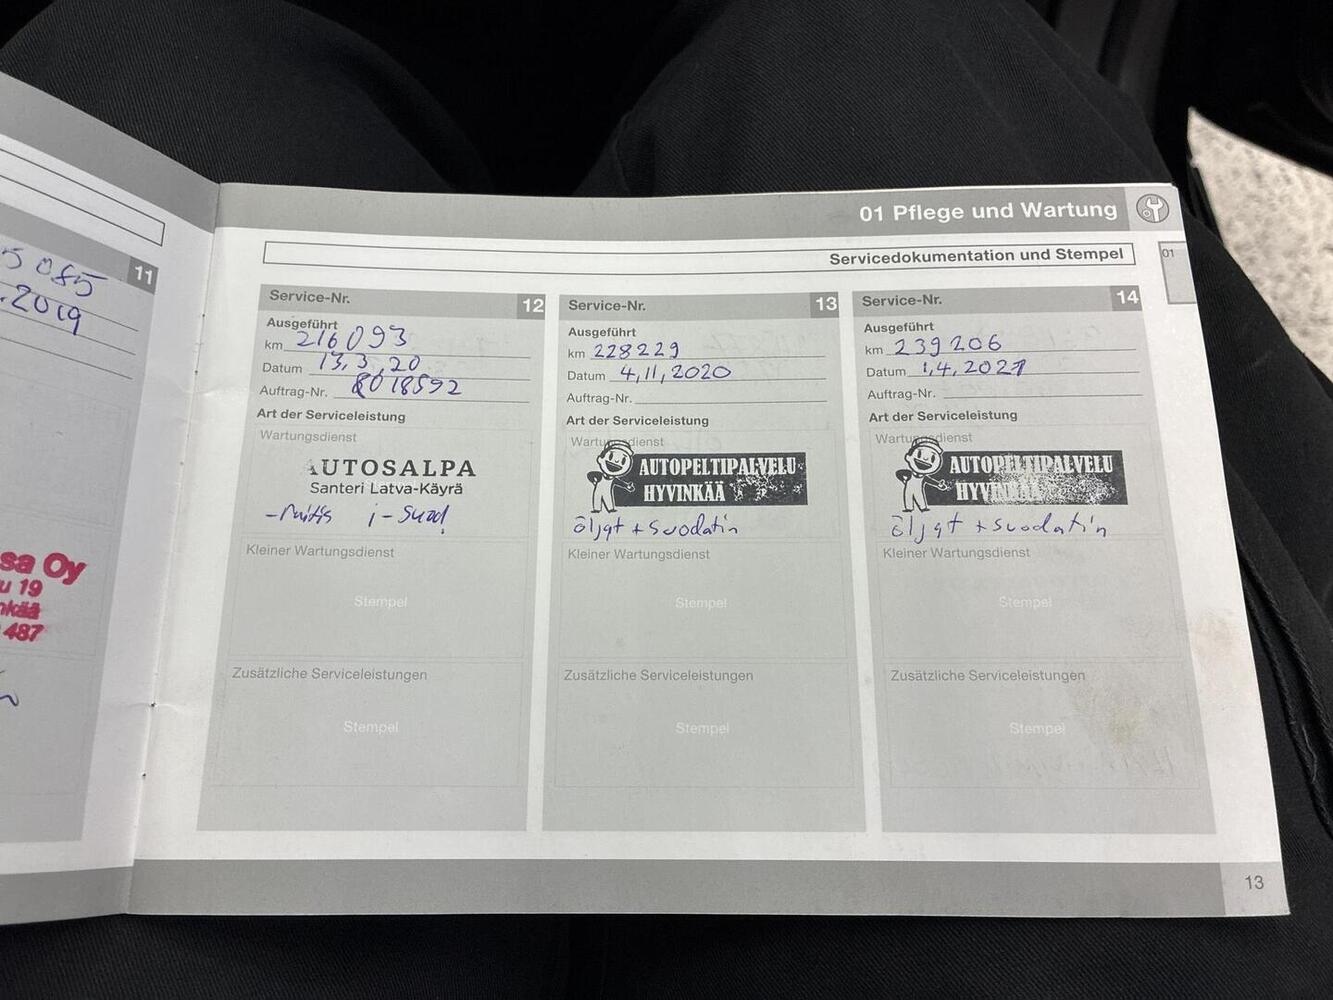 5085
11
.2019
sa Oy
u 19
nkää
487
01 Pflege und Wartung
Servicedokumentation und Stempel
01
Service-Nr. 12
Ausgeführt
km 216093
Datum 13.3.20
Auftrag-Nr. 8018592
Art der Serviceleistung
Wartungsdienst
AUTOSALPA
Santeri Latva-Käyrä
Kleiner Wartungsdienst
Stempel
Zusätzliche Serviceleistungen
Stempel
Service-Nr. 13
Ausgeführt
km 228229
Datum 4,11,2020
Auftrag-Nr.
Art der Serviceleistung
Wartungsdienst
AUTOPELTIPALVELU
HYVINKÄÄ
öljyt + suodatin
Kleiner Wartungsdienst
Stempel
Zusätzliche Serviceleistungen
Stempel
Service-Nr. 14
Ausgeführt
km 239206
Datum 1,4,2021
Auftrag-Nr.
Art der Serviceleistung
Wartungsdienst
AUTOPELTIPALVELU
HYVINKÄÄ
öljyt + suodatin
Kleiner Wartungsdienst
Stempel
Zusätzliche Serviceleistungen
Stempel
13